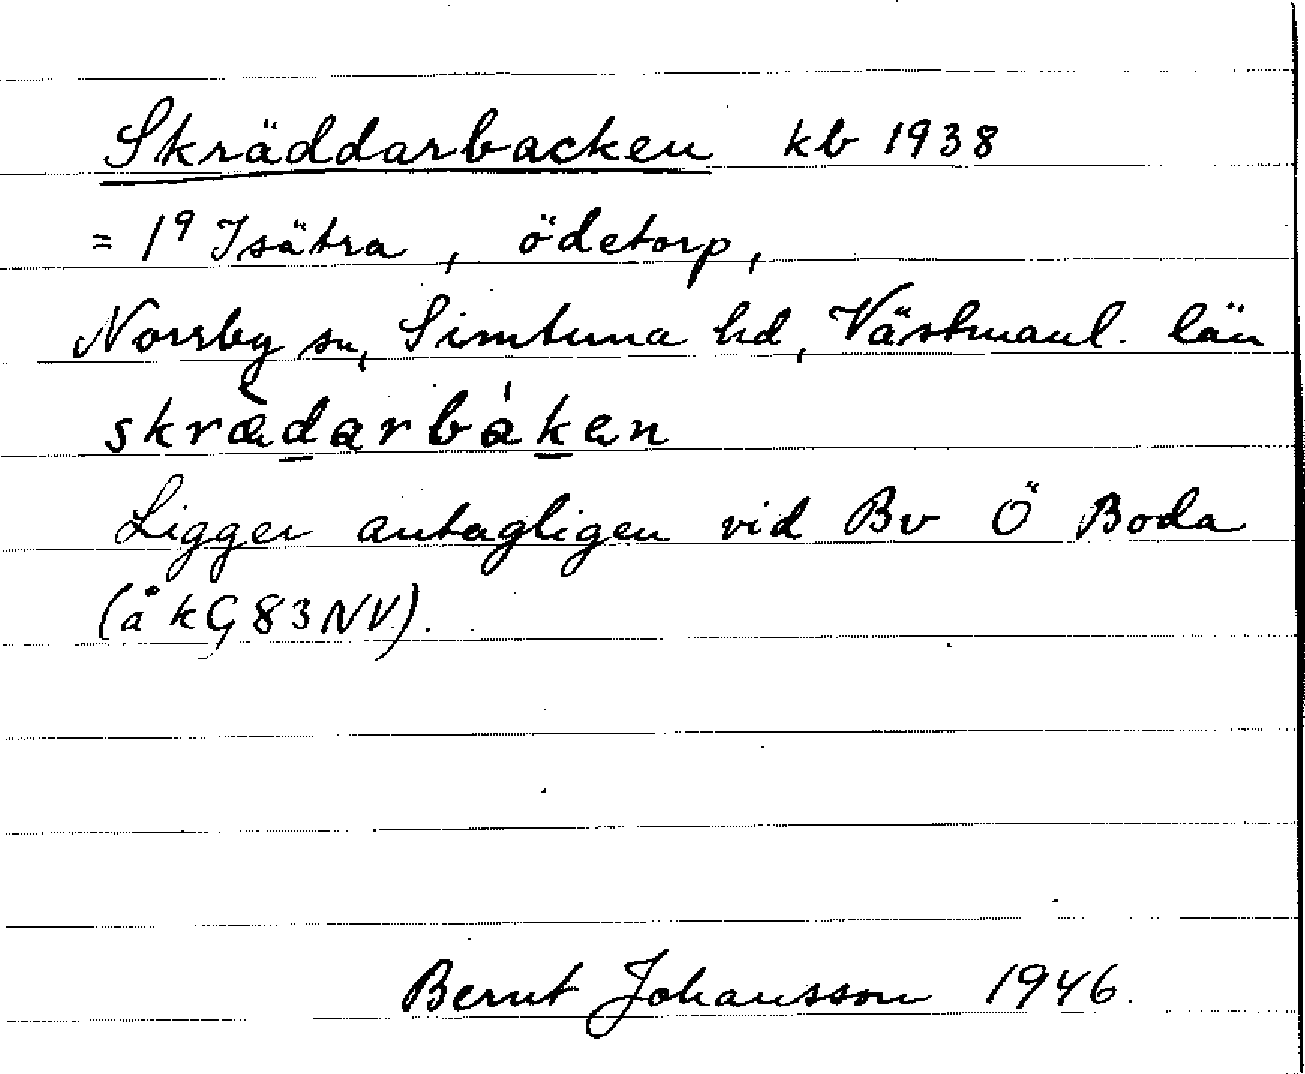 Skräddarbacken kb 1938
= 1⁹ Isätra, ödetorp,
Norrby sn, Simtuna hd, Västmanl. län
skrædarbaken
Ligger antagligen vid Bv Ö Boda
(å kG 83 NV).
Bernt Johansson 1946.